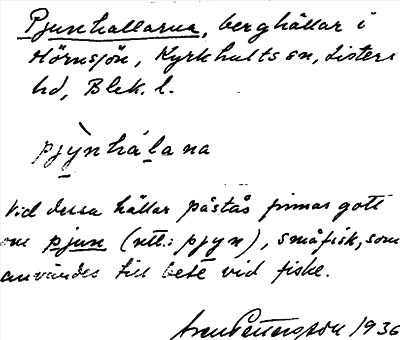 Pjunhallarna, berghällar i
Hörnsjön, Kyrkhults sn, Listers
hd, Blek. l.
pjỳnhálana
Vid dessa hällar påstås finnas gott
om pjun (utt.: pjyn), småfisk, som
användes till bete vid fiske.
Pettersson 1936